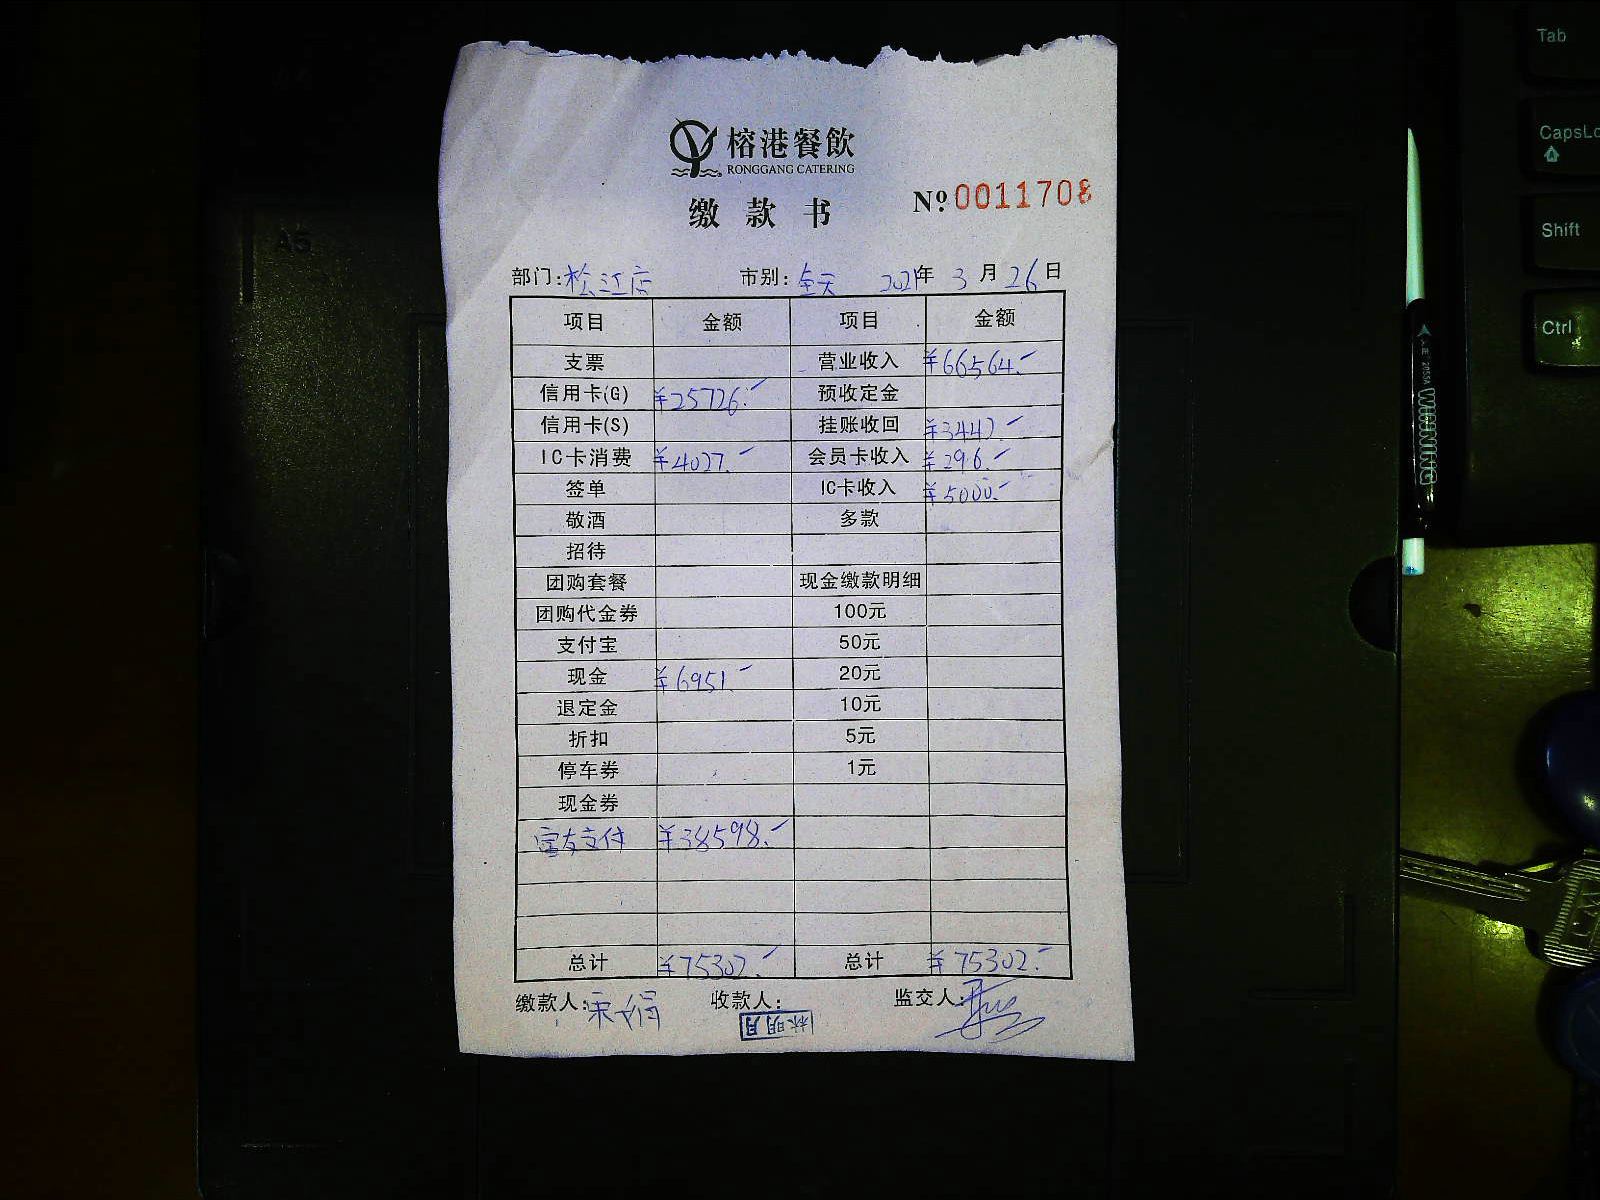 榕港餐飲
RONGGANG CATERING
缴款书
№ 0011708
部门:松江店 市别:全天 2021年3月26日
项目 金额 项目 金额
支票 营业收入 ¥66564.-
信用卡(G) ¥25726.- 预收定金
信用卡(S) 挂账收回 ¥3442.-
IC卡消费 ¥4027.- 会员卡收入 ¥296.-
签单 IC卡收入 ¥5000.-
敬酒 多款
招待
团购套餐 现金缴款明细
团购代金券 100元
支付宝 50元
现金 ¥6951.- 20元
退定金 10元
折扣 5元
停车券 1元
现金券
支付 ¥38598.-
总计 ¥75302.- 总计 ¥75302.-
缴款人: 收款人: 监交人:
林明月
A5
Tab
CapsLo
Shift
Ctrl
WINNING